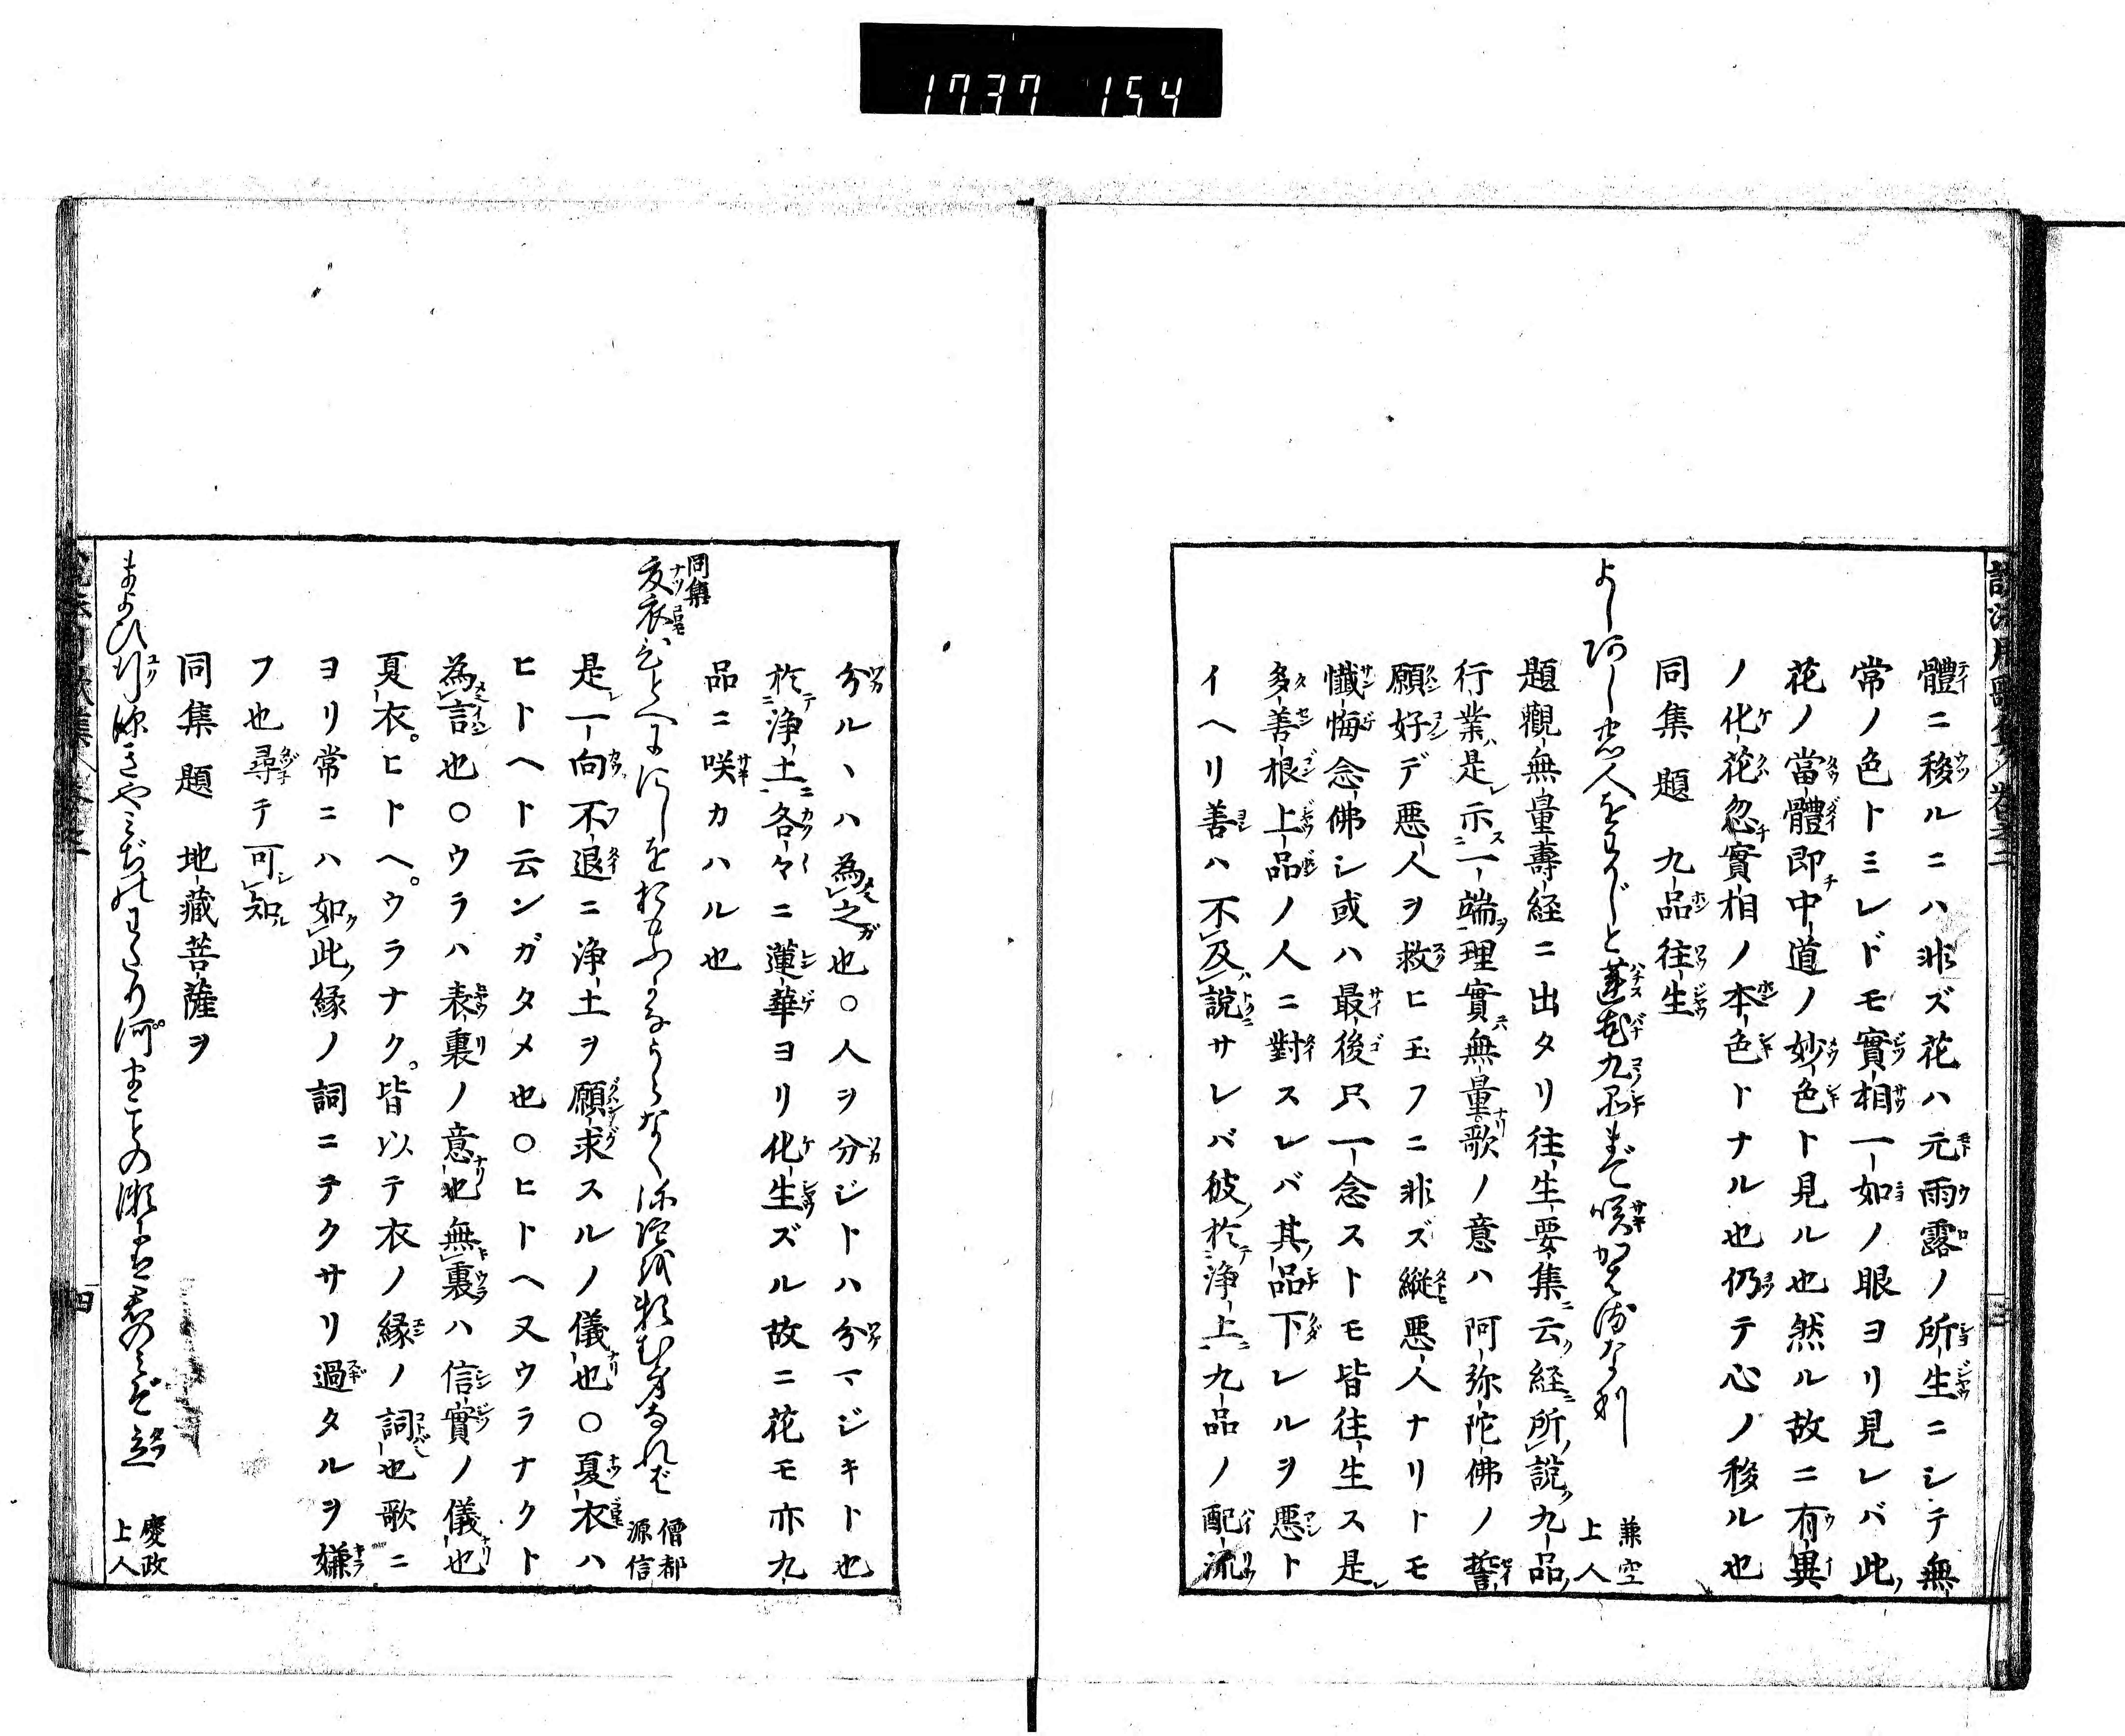 1737 154
體ニ移ルニハ非ズ花ハ元雨露ノ所生ニシテ無
常ノ色トミレドモ實相一如ノ眼ヨリ見レバ此
花ノ當體即中道ノ妙色ト見ル也然ル故ニ有異
ノ化花忽實相ノ本色トナル也仍テ心ノ移ル也
同集題 九品往生
よしあし 人をわかじと蓮花九品まで咲かはるなり
兼空
上人
題觀無量壽経ニ出タリ往生要集ニ云経ニ所說九品
行業ハ是示一端ヲ理實ニハ無量ナリ歌ノ意ハ阿弥陀佛ノ誓
願好デ悪人ヲ救ヒ玉フニ非ズ縱悪人ナリトモ
懺悔念佛シ或ハ最後只一念ストモ皆往生ス是
多善根上品ノ人ニ對スレバ其品下レルヲ悪ト
イヘリ善ハ不及說サレバ彼ノ於浄土ニ九品ノ配流
分ルヽハ為之也○人ヲ分ジトハ分マジキト也
於浄土各々ニ蓮華ヨリ化生ズル故ニ花モ亦九
品ニ咲カハル也
同集
夏衣ひとへににしをおもふかなうらなく弥陀を頼む身なれば
僧都
源信
是一向不退ニ浄土ヲ願求スルノ儀也○夏衣ハ
ヒトヘト云ンガタメ也○ヒトヘ又ウラナクト
為言也○ウラハ表裏ノ意也無裏ハ信實ノ儀也
夏衣。ヒトヘ。ウラナク。皆以テ衣ノ縁ノ詞也歌ニ
ヨリ常ニハ如此縁ノ詞ニテクサリ過タルヲ嫌
フ也尋テ可知
同集題 地藏菩薩ヲ
慶政
上人